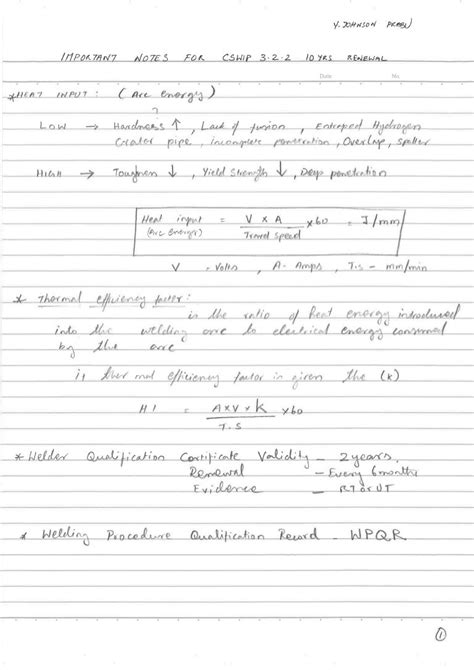 Y. JOHNSON PRABU
IMPORTANT NOTES FOR CSWIP 3.2.2 10 YRS RENEWAL
Date No
*HEAT INPUT : (Arc energy)
?
LOW → Hardness ↑, Lack of fusion, Entraped Hydrogen
Crater pipe, incomplete penetration, Overlap, spatter
HIGH → Toughnen ↓, Yield Strength ↓, Deep penetration
Heat input = V X A x60 = J/mm
(Arc Energy) Travel speed
V - Volts, A - Amps, T.S - mm/min
* Thermal efficiency factor:
is the ratio of heat energy introduced
into the welding arc to electrical energy consumed
by the arc
ij thermal efficiency factor in given the (k)
HI = AxVxK x60
T.S
*Welder Qualification Certificate Validity - 2 years,
Renewal - Every 6 months
Evidence - RT or UT
* Welding Procedure Qualification Record - WPQR
1